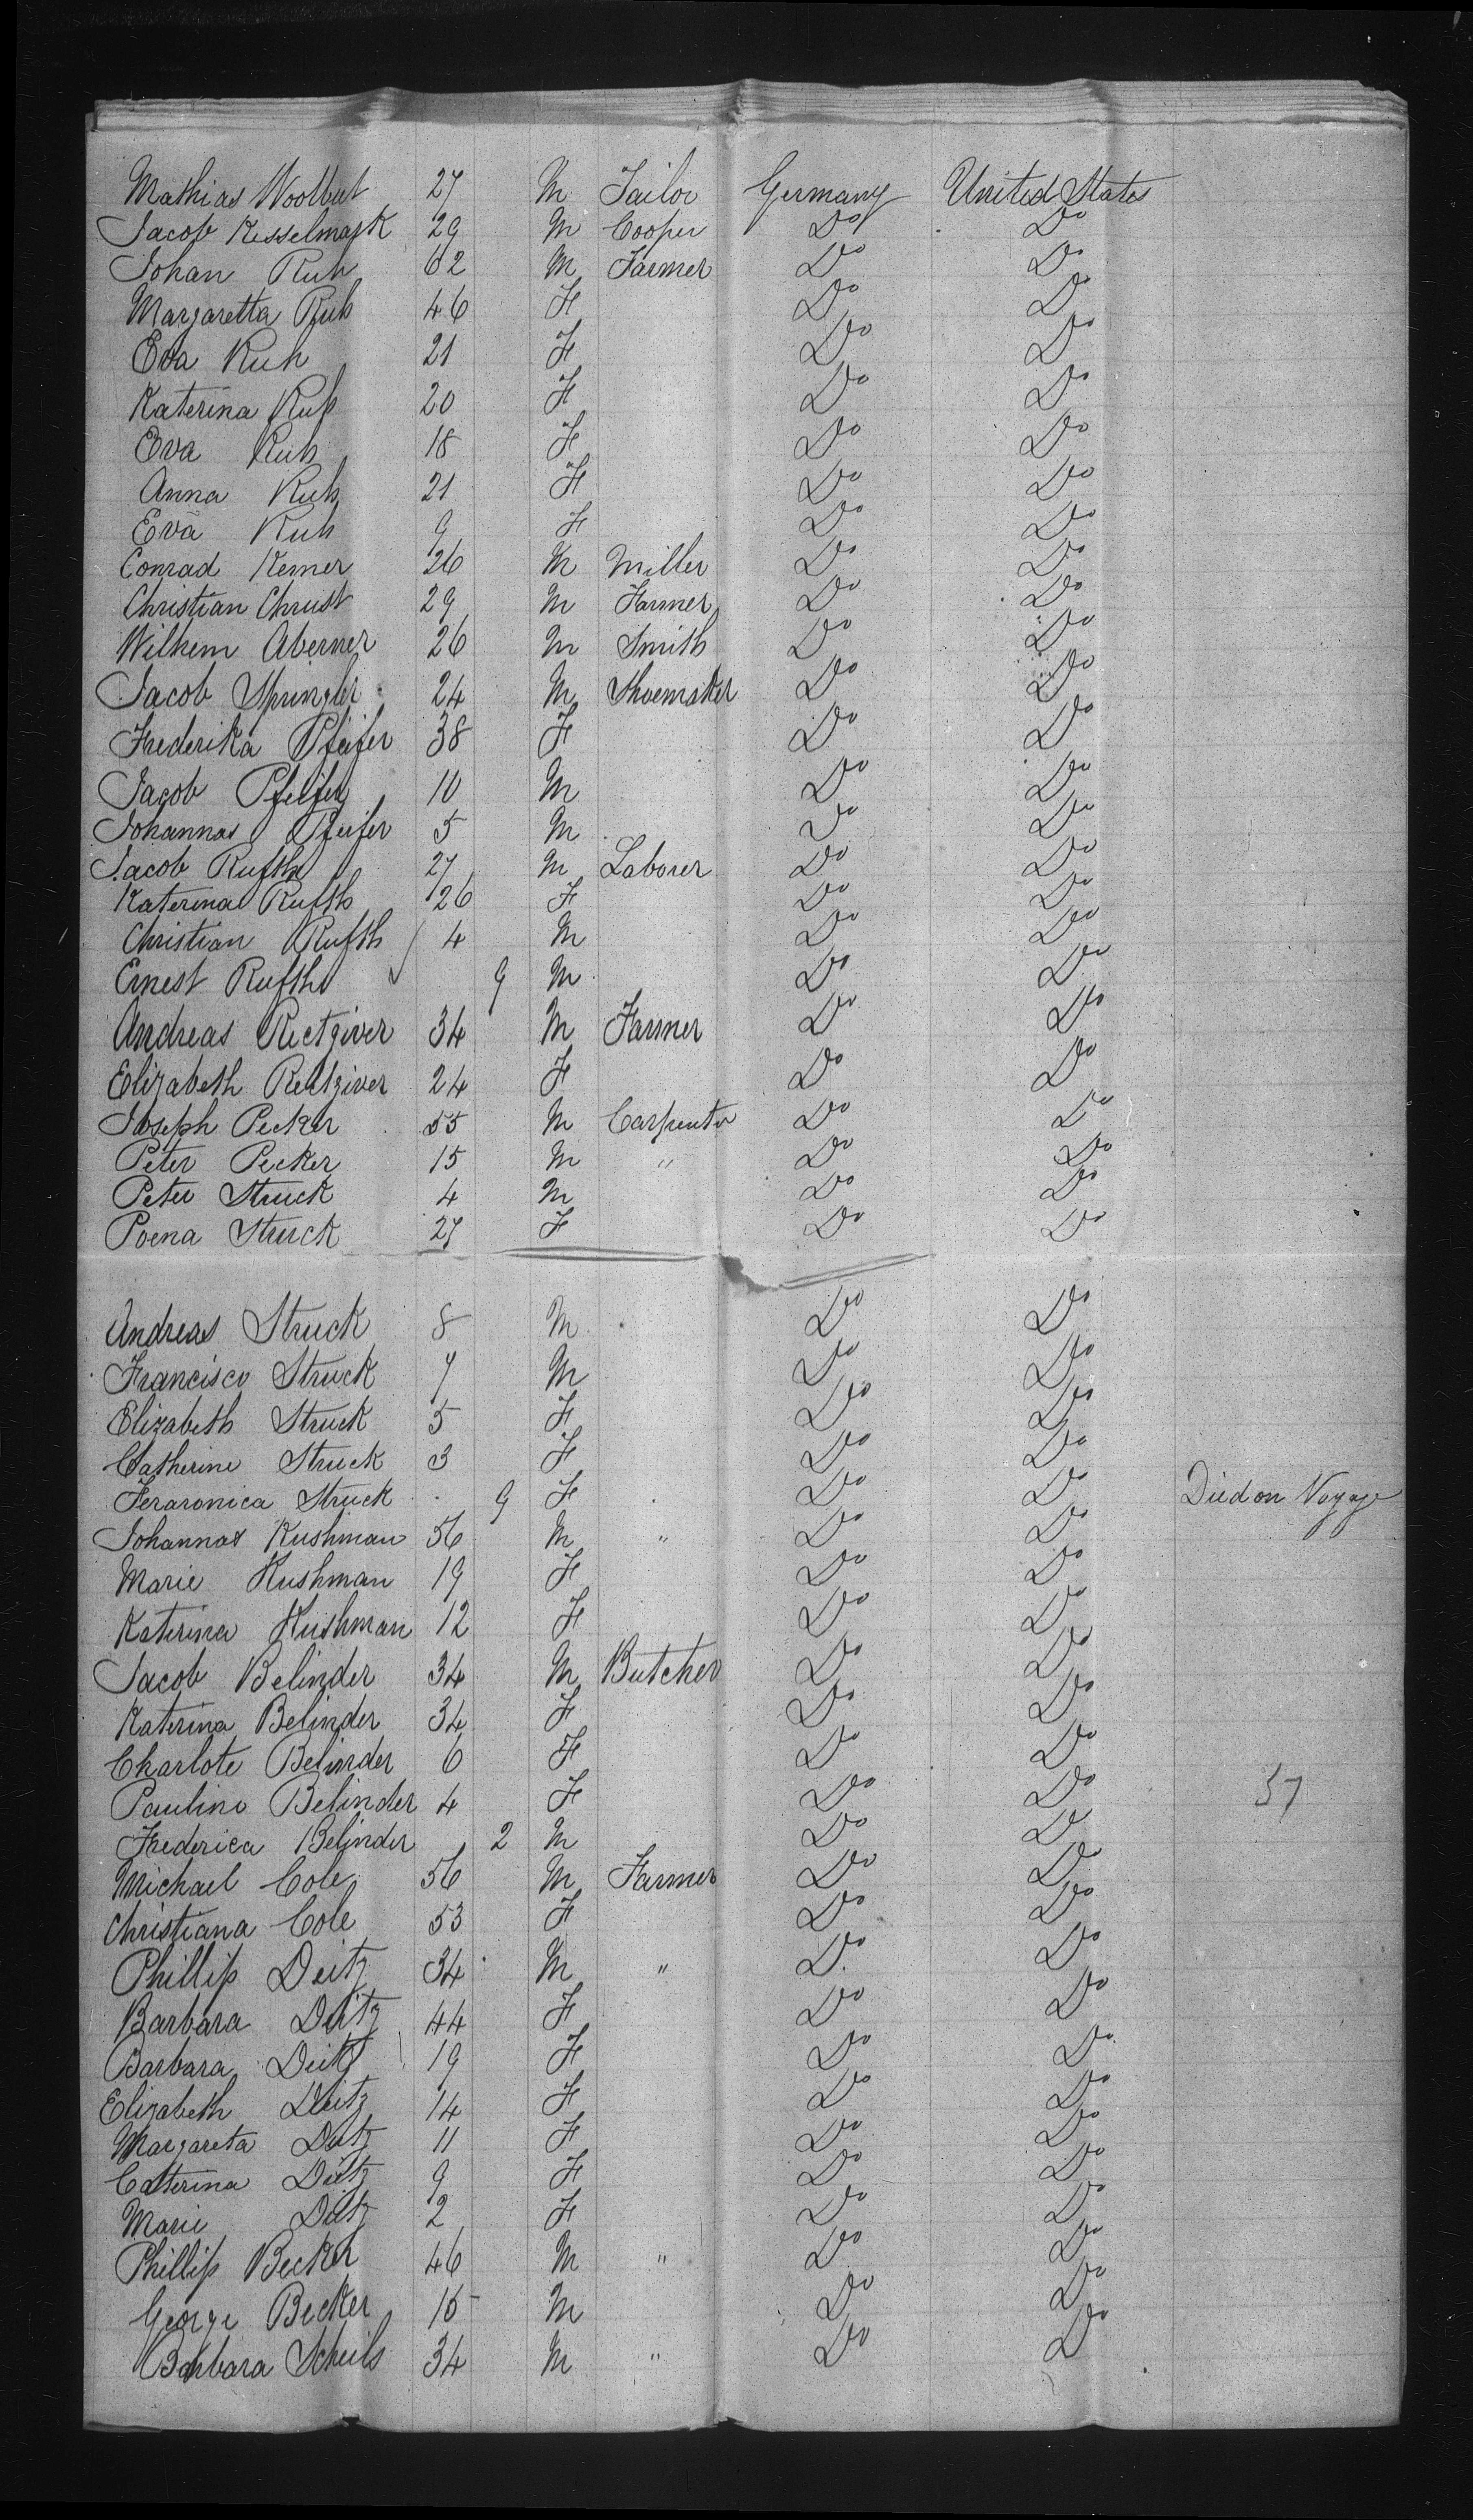 Mathias Woolbut 27 M Tailor Germany United States
Jacob Kesselmark 29 M Cooper Do Do
Johan Ruh 62 M Farmer Do Do
Margaretta Ruh 46 F Do Do
Eva Ruh 21 F Do Do
Katerina Ruh 20 F Do Do
Eva Ruh 18 F Do Do
Anna Ruh 21 F Do Do
Eva Ruh 9 F Do Do
Conrad Kemer 26 M Miller Do Do
Christian Chrust 29 M Farmer Do Do
Wilhem Aberner 26 M Smith Do Do
Jacob Springler 24 M Shoemaker Do Do
Frederika Pfeifer 38 F Do Do
Jacob Pfeifer 10 M Do Do
Johannas Pfeifer 5 M Do Do
Jacob Rufth 27 M Laborer Do Do
Katerina Rufth 26 F Do Do
Christian Rufth 4 M Do Do
Ernest Rufth 9 M Do Do
Andreas Rietziver 34 M Farmer Do Do
Elizabeth Reitziver 24 F Do Do
Joseph Pecker 55 M Carpenter Do Do
Peter Pecker 15 M " Do Do
Peter Struck 4 M Do Do
Poena Struck 27 F Do Do
Andreas Struck 8 M Do Do
Francisco Struck 7 M Do Do
Elizabeth Struck 5 F Do Do
Catherine Struck 3 F Do Do
Feraronica Struck 9 F Do Do Died on Voyage
Johannas Kushman 56 M " Do Do
Marie Kushman 19 F Do Do
Katerina Kushman 12 F Do Do
Jacob Belinder 34 M Butcher Do Do
Katerina Belinder 34 F Do Do
Charlote Belinder 6 F Do Do
Pauline Belinder 4 F Do Do 57
Frederica Belinder 2 M Do Do
Michael Cole 56 M Farmer Do Do
Christiana Cole 53 F Do Do
Phillip Deitz 34 M " Do Do
Barbara Deitz 44 F Do Do
Barbara Deitz 19 F Do Do
Elizabeth Deitz 14 F Do Do
Margareta Deitz 11 F Do Do
Catterina Deitz 9 F Do Do
Marie Deitz 2 F Do Do
Phillip Becker 46 M " Do Do
George Becker 15 M Do Do
Barbara Scheils 34 M " Do Do